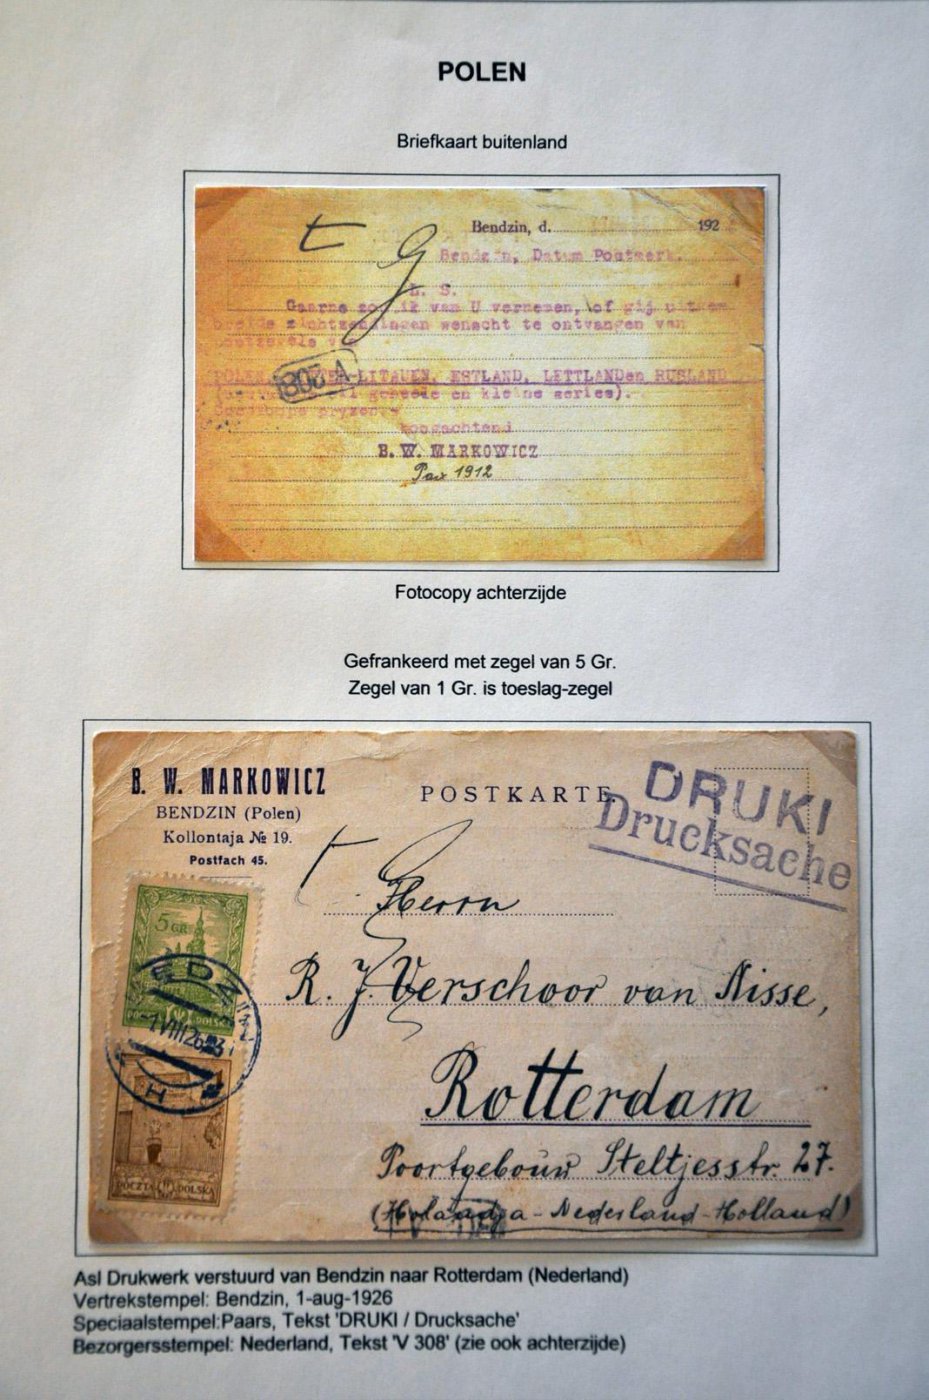 POLEN
Briefkaart buitenland
Bendzin, d. 192
Bendzin, Datum Postmerk.
L. S.
Gaarne zou ik van U vernemen, of gij uitgem
breide zichtzendingen wenscht te ontvangen van
POLEN, LITAUEN, ESTLAND, LETTLANDen RUSLAND
geheele en kleine series).
Hoogachtend
B. W. MARKOWICZ
1912
308 A
Fotocopy achterzijde
Gefrankeerd met zegel van 5 Gr.
Zegel van 1 Gr. is toeslag-zegel
B. W. MARKOWICZ
BENDZIN (Polen)
Kollontaja № 19.
Postfach 45.
POSTKARTE.
DRUKI
Drucksache
5 GR
POLSKA
-1 VIII 26
POCZTA POLSKA
Herrn
R. J. Verschoor van Nisse,
Rotterdam
Poortgebouw Steltjesstr. 27.
(Holandja - Nederland - Holland)
Asl Drukwerk verstuurd van Bendzin naar Rotterdam (Nederland)
Vertrekstempel: Bendzin, 1-aug-1926
Speciaalstempel:Paars, Tekst 'DRUKI / Drucksache'
Bezorgersstempel: Nederland, Tekst 'V 308' (zie ook achterzijde)